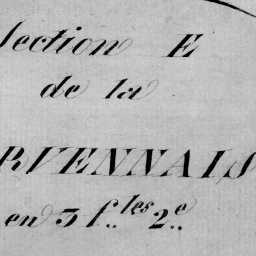 Section E
de la
RVENNAIS
en 3 f.les 2.e